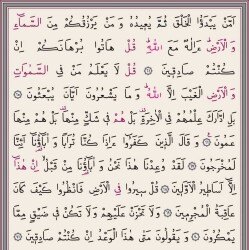 اَمَّنْ يَبْدَؤُا الْخَلْقَ ثُمَّ يُعٖيدُهُ وَ مَنْ يَرْزُقُكُمْ مِنَ السَّمَٓاءِ
وَ الْاَرْضِ ءَاِلٰهٌ مَعَ اللّٰهِ قُلْ هَاتُوا بُرْهَانَكُمْ اِنْ
كُنْتُمْ صَادِقٖينَ ۞ قُلْ لَا يَعْلَمُ مَنْ فِي السَّمٰوَاتِ
وَ الْاَرْضِ الْغَيْبَ اِلَّا اللّٰهُ وَ مَا يَشْعُرُونَ اَيَّانَ يُبْعَثُونَ ۞
بَلِ ادَّارَكَ عِلْمُهُمْ فِي الْاٰخِرَةِ بَلْ هُمْ فٖي شَكٍّ مِنْهَا بَلْ هُمْ مِنْهَا
عَمُونَ ۞ وَ قَالَ الَّذٖينَ كَفَرُٓوا ءَاِذَا كُنَّا تُرَابًا وَ اٰبَٓاؤُ۬نَٓا اَئِنَّا
لَمُخْرَجُونَ ۞ لَقَدْ وُعِدْنَا هٰذَا نَحْنُ وَ اٰبَٓاؤُ۬نَا مِنْ قَبْلُ اِنْ هٰذَٓا
اِلَّٓا اَسَاطٖيرُ الْاَوَّلٖينَ ۞ قُلْ سٖيرُوا فِي الْاَرْضِ فَانْظُرُوا كَيْفَ كَانَ
عَاقِبَةُ الْمُجْرِمٖينَ ۞ وَ لَا تَحْزَنْ عَلَيْهِمْ وَ لَا تَكُنْ فٖي ضَيْقٍ مِمَّا
يَمْكُرُونَ ۞ وَ يَقُولُونَ مَتٰى هٰذَا الْوَعْدُ اِنْ كُنْتُمْ صَادِقٖينَ ۞